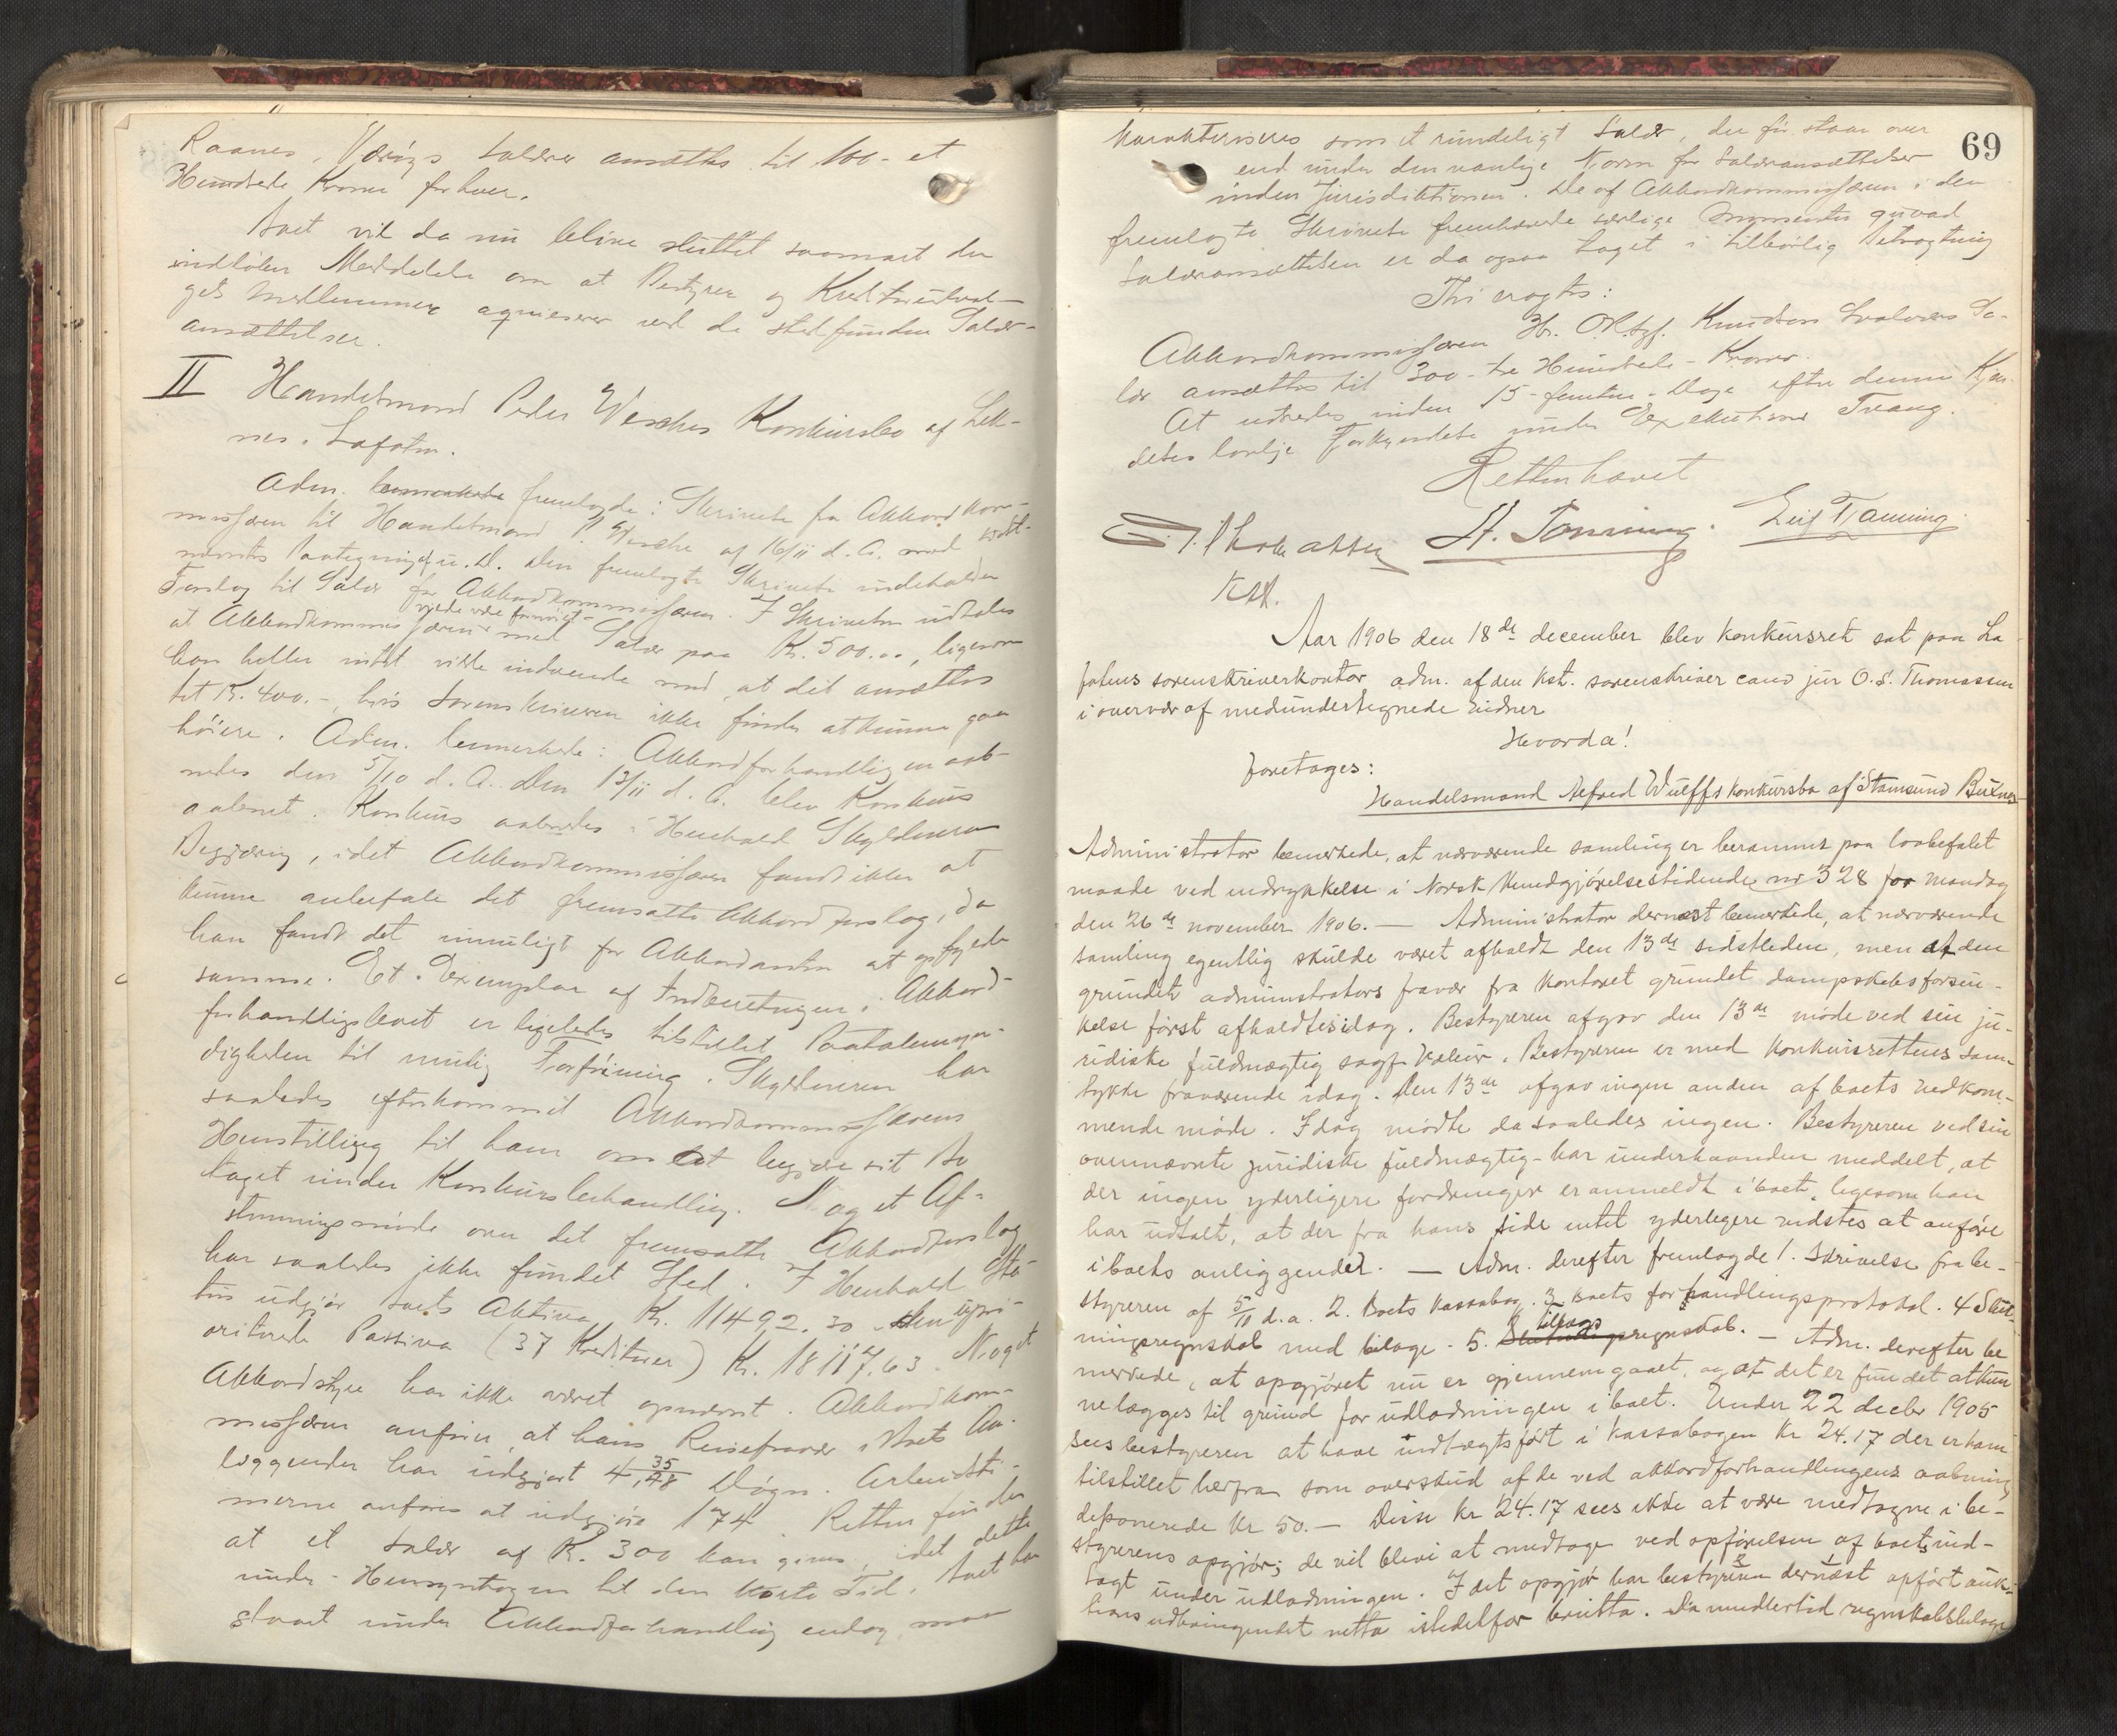 Raanes, Værøys Salærer ansættes til 100 - et
Hundrede Kroner for hver.
Boet vil da nu blive sluttet saasnart der
indløber Meddelelse om at Bestyrer og Kreditorudval-
gets Medlemmer aqviescerer ved de stedfundne Salær-
ansættelser.
II Handelsmand Peder Wesches Konkursbo af Lek-
nes i Lofoten.
Adm. bemærkede fremlagde: Skrivelse fra Akkordkom-
missæren til Handelsmand P. Wesche af 16/11 d. A. med sidst-
nævntes Paategning af u. D. Den fremlagte Skrivelse indeholder
Forslag til Salær for Akkordkommissæren. I Skrivelsen udtales
at Akkordkommissæren vilde være fornøiet med Salær paa Kr. 500.00, ligesom
han heller intet vilde indvende mod, at det ansættes
til Kr. 400.-, hvis Sorenskriveren ikke finder at kunne gaa
høiere. Adm. bemærkede: Akkordforhandlingen aab-
nedes den 5/10 d. A. Den 13/11 d. A. blev Konkurs
aabnet. Konkurs aabnedes i Henhold Skyldnerens
Begjæring, idet Akkordkommissæren fandt ikke at
kunne anbefale det fremsatte Akkordforslag, da
han fandt det umuligt for Akkordanten at opfylde
samme. Et Exemplar af Indberetningen i Akkord-
forhandlingsboet er ligeledes tilstillet Paatalemyn-
digheden til mulig Forføining. Skyldneren har
saaledes efterkommet Akkordkommissærens
Henstilling til ham om at begjære sit Bo
taget under Konkursbehandling. Noget Af-
stemningsmøde over det fremsatte Akkordforslag
har saaledes ikke fundet Sted. I Henhold Sta-
tus udgjør Boets Aktiva Kr. 11492.30. Den upri-
oriterede Passiva (37 Kreditorer) Kr. 18117.63. Noget
Akkordstyre har ikke været opnævnt. Akkordkom-
missæren anfører, at hans Reisefravær i Boets An-
liggender har udgjort 4 35/48 Døgn. Arbeidsti-
merne anføres at udgjøre 174. Retten finder
at et Salær af Kr. 300 kan gives, idet dette
under Hensyntagen til den korte Tid, Boet har
staaet under Akkordforhandling endog maa
69
karakteriseres som et rundeligt Salær, der før staar over
end under den vanlige Norm for Salæransættelser
inden Jurisdiktionen. De af Akkordkommissæren i den
fremlagte Skrivelse fremhævede særlige Momenter quoad
Salæransættelsen er da ogsaa taget i tilbørlig Betragtning
Thi eragtes:
Akkordkommissæren Hr. O.R.Sgf. Knudsen Svolværs Sa-
lær ansættes til 300 - tre Hundrede - Kroner.
At udredes inden 15 - femten - Dage efter denne Kjen-
delses lovlige Forkyndelse under Exekutions Tvang.
Retten hævet
O. S. Thomassen H. Tonning. Leif Tonning.
Kst.
Aar 1906 den 18de december blev konkursret sat paa Lo
fotens sorenskriverkontor adm. af den kst. sorenskriver cand jur O. S. Thomassen
i overvær af medundertegnede vidner
Hvorda!
foretages:
Handelsmand Alfred Wulffs konkursbo af Stamsund Buxnes
Administrator bemerkede, at nærværende samling er berammet paa lovbefalet
maade ved indrykkelse i Norsk Kundgjørelsestidende nr 328 for mandag
den 26de november 1906. — Administrator dernæst bemerkede, at nærværende
samling egentlig skulde været afholdt den 13de sidstleden, men at den
grundet administrators fravær fra kontoret grundet dampskibsforsin-
kelse først afholdtes idag. Bestyreren afgav den 13de møde ved sin ju-
ridiske fuldmægtig sagf. . Bestyreren er med konkursrettens sam-
tykke fraværende idag. Den 13de afgav ingen anden af boets vedkom-
mende møde. Idag mødte da saaledes ingen. Bestyreren ved sin
ovennævnte juridiske fuldmægtig - har underhaanden meddelt, at
der ingen yderligere fordringer er anmeldt i boet, ligesom han
har udtalt, at der fra hans side intet yderligere vidstes at anføre
i boets anliggender. — Adm. derefter fremlagde 1. Skrivelse fra be-
styreren af 5/11 d. a. 2. Boets kassabog. 3 Boets forhandlingsprotokol. 4 Slut-
ningsregnskab med bilage. 5. tillægsregnskab. — Adm. derefter be
merkede, at opgjøret nu er gjennemgaaet, og at det er fundet at kun
ne lægges til grund for udlodningen i boet. Under 22 decbr 1905
sees bestyreren at have indtægtsført i kassabogen Kr 24.17 der er ham
tilstillet herfra som overskud af de ved akkordforhandlingens aabning
deponerede Kr 50.— Disse Kr 24.17 sees ikke at være medtagne i be-
styrerens opgjør; de vil blive at medtage ved opførelsen af boets ind-
tægt under udlodningen. I det opgjør har bestyreren dernæst opført auk-
tions udbringendet netto istedetfor brutto. Da imidlertid regnskabsbilage